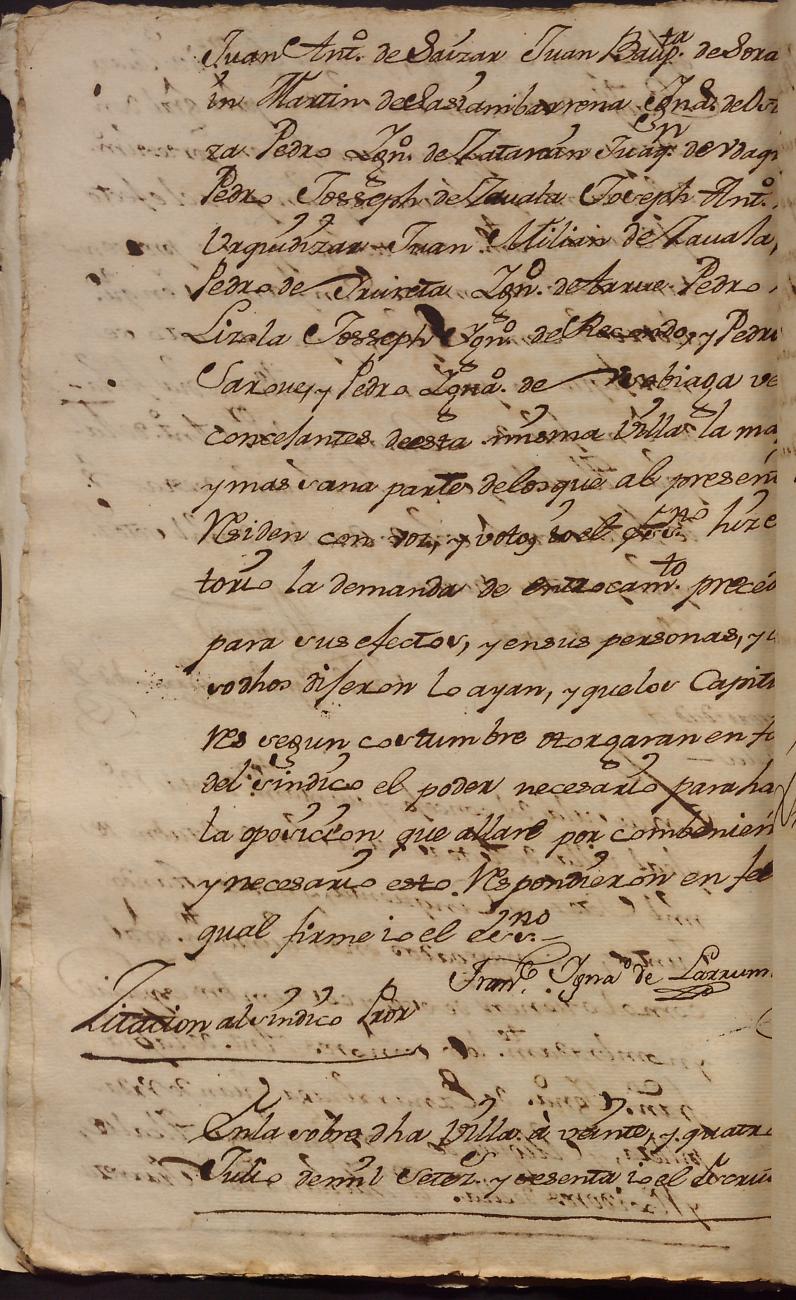 Juan Antº. de Saizar Juan Bauptª. de Sora
in Martin de Lascanibarrena Ignº. de
za Pedro Ignº. de Zatarain Juaqⁿ. de Vdaq
Pedro Josseph de Zavala Joseph Antº.
Vrquidizar Juan Milian de Zavala,
Pedro de Irureta Ignº. de Arrue Pedro
Lizola Josseph Ignº. de Recondo, y Pedro
Sarove, y Pedro Ignaº. de biaga ve
concejantes de esta misma Villa la ma
y mas sana parte de los que al presen
residen con voz, y voto, io el essnº hize
torio la demanda de entrocamtº. preced
para sus efectos, y en sus personas, y
sodhos diſeron lo ayan, y que los Capitu
res segun costumbre otorgaran en fa
del sindico el poder necesario para ha
la oposicion que allare por combenien
y necesario esto respondieron en fee
qual firme io el essnº.
Franº. Ignaº de Larrum
Zitacion al sindico Pror
En la sobre dha Villa à veinte, y quatro
Julio de mil setez. y sesenta io el Escriv